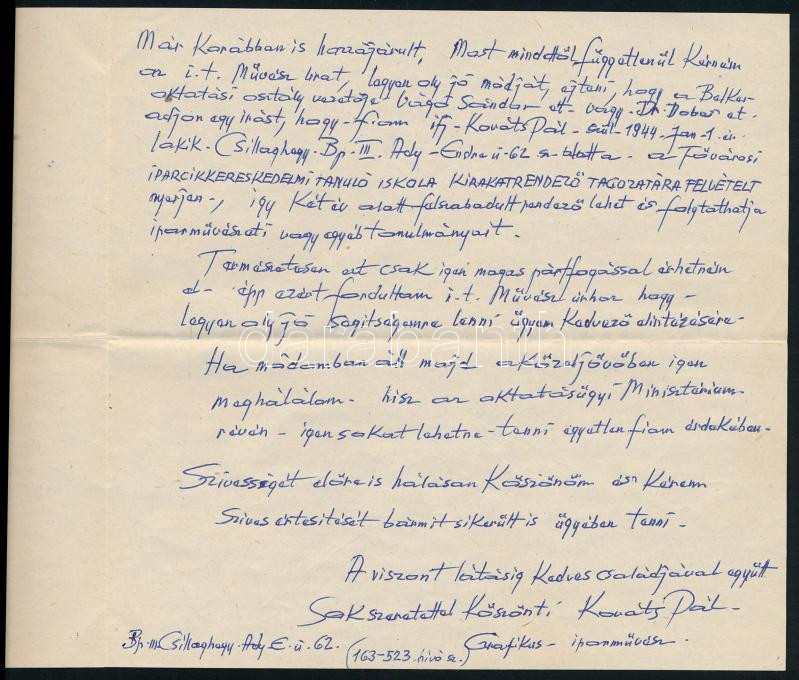 Már Korábban is hozzájárult, Most mindettől függetlenül Kérném
az i.t. Művész Urat, legyen oly jó módját, ejteni, hogy a Belker-
oktatási osztály vezetője Vágó Sándor et- vagy- Dr Dobos et.
adjon egy írást, hogy- fiam ifj- Kováts Pál- szül-1944-Jan-1. én
lakik- Csillaghegy- Bp- III. Ady-Endre ú-62 sz alatta- a Fővárosi
IPARCIKKERESKEDELMI TANULÓ ISKOLA KIRAKATRENDEZŐ TAGOZATÁRA FELVÉTELT
nyerjen-, így Két év alatt felszabadult rendező lehet és folytathatja
iparművészeti vagy egyéb tanulmányait-
Természetesen ezt csak igen magas pártfogással érhetném
el- épp ezért fordultam i.t. Művész úrhoz hogy-
legyen oly jó segítségemre lenni ügyem Kedvező elintézésére-
Ha módomban áll majd a Közeljövőben igen
meghálálom- hisz az oktatásügyi Minisztérium-
révén- igen sokat lehetne- tenni egyetlen fiam érdekében-
Szívességét előre is hálásan Köszönöm és Kérem
Szíves értesítését bármit sikerült is ügyében tenni-
A viszont látásig Kedves családjával együtt
Sok szeretettel Köszönti Kováts Pál-
Bp. III. Csillaghegy. Ady E. ú. 62. (163-523. hívó sz.) Grafikus- iparművész.
darabanth